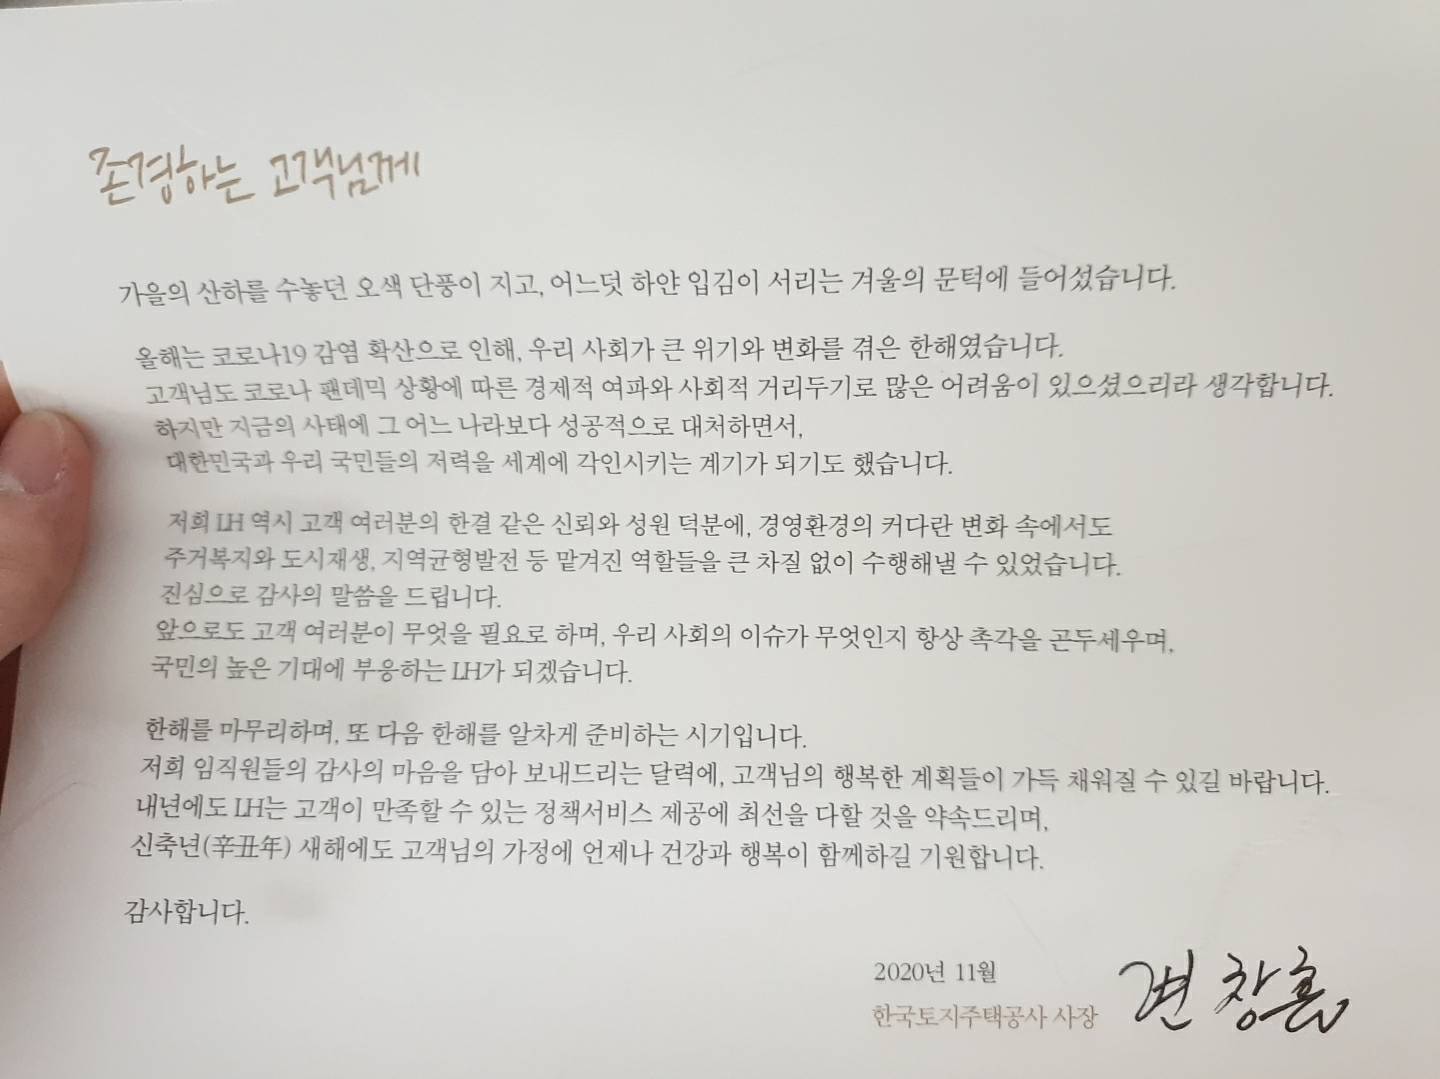 존경하는 고객님께
가을의 산하를 수놓던 오색 단풍이 지고, 어느덧 하얀 입김이 서리는 겨울의 문턱에 들어섰습니다.
올해는 코로나19 감염 확산으로 인해, 우리 사회가 큰 위기와 변화를 겪은 한해였습니다.
고객님도 코로나 팬데믹 상황에 따른 경제적 여파와 사회적 거리두기로 많은 어려움이 있으셨으리라 생각합니다.
하지만 지금의 사태에 그 어느 나라보다 성공적으로 대처하면서,
대한민국과 우리 국민들의 저력을 세계에 각인시키는 계기가 되기도 했습니다.
저희 LH 역시 고객 여러분의 한결 같은 신뢰와 성원 덕분에, 경영환경의 커다란 변화 속에서도
주거복지와 도시재생, 지역균형발전 등 맡겨진 역할들을 큰 차질 없이 수행해낼 수 있었습니다.
진심으로 감사의 말씀을 드립니다.
앞으로도 고객 여러분이 무엇을 필요로 하며, 우리 사회의 이슈가 무엇인지 항상 촉각을 곤두세우며,
국민의 높은 기대에 부응하는 LH가 되겠습니다.
한해를 마무리하며, 또 다음 한해를 알차게 준비하는 시기입니다.
저희 임직원들의 감사의 마음을 담아 보내드리는 달력에, 고객님의 행복한 계획들이 가득 채워질 수 있길 바랍니다.
내년에도 LH는 고객이 만족할 수 있는 정책서비스 제공에 최선을 다할 것을 약속드리며,
신축년(辛丑年) 새해에도 고객님의 가정에 언제나 건강과 행복이 함께하길 기원합니다.
감사합니다.
2020년 11월
한국토지주택공사 사장 변창흠